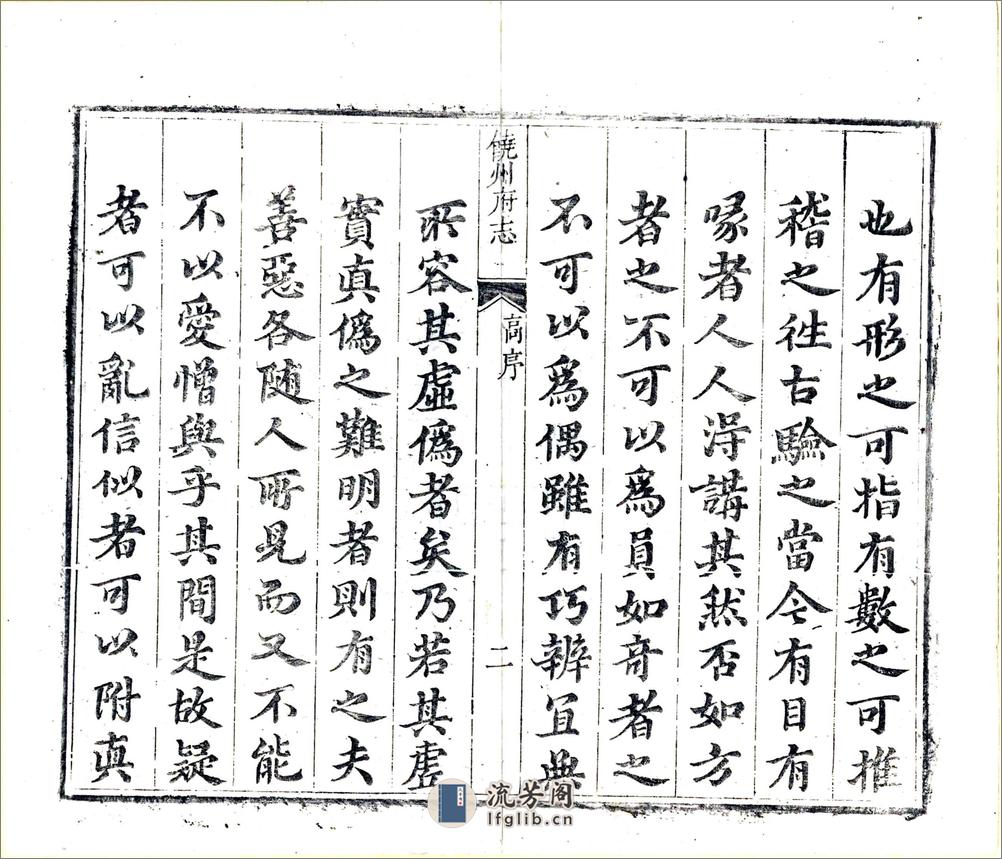 也有形之可指有數之可推
稽之徃古驗之當今有目有
喙者人人淂講其然否如方
者之不可以爲員如奇者之
不可以爲偶雖有巧辨宜無
饒州府志
高序
二
所容其虛僞者矣乃若其虛
實真僞之難明者則有之夫
善惡各随人所見而又不能
不以愛憎與乎其間是故疑
者可以亂信似者可以附真
流芳阁
lfglib.cn